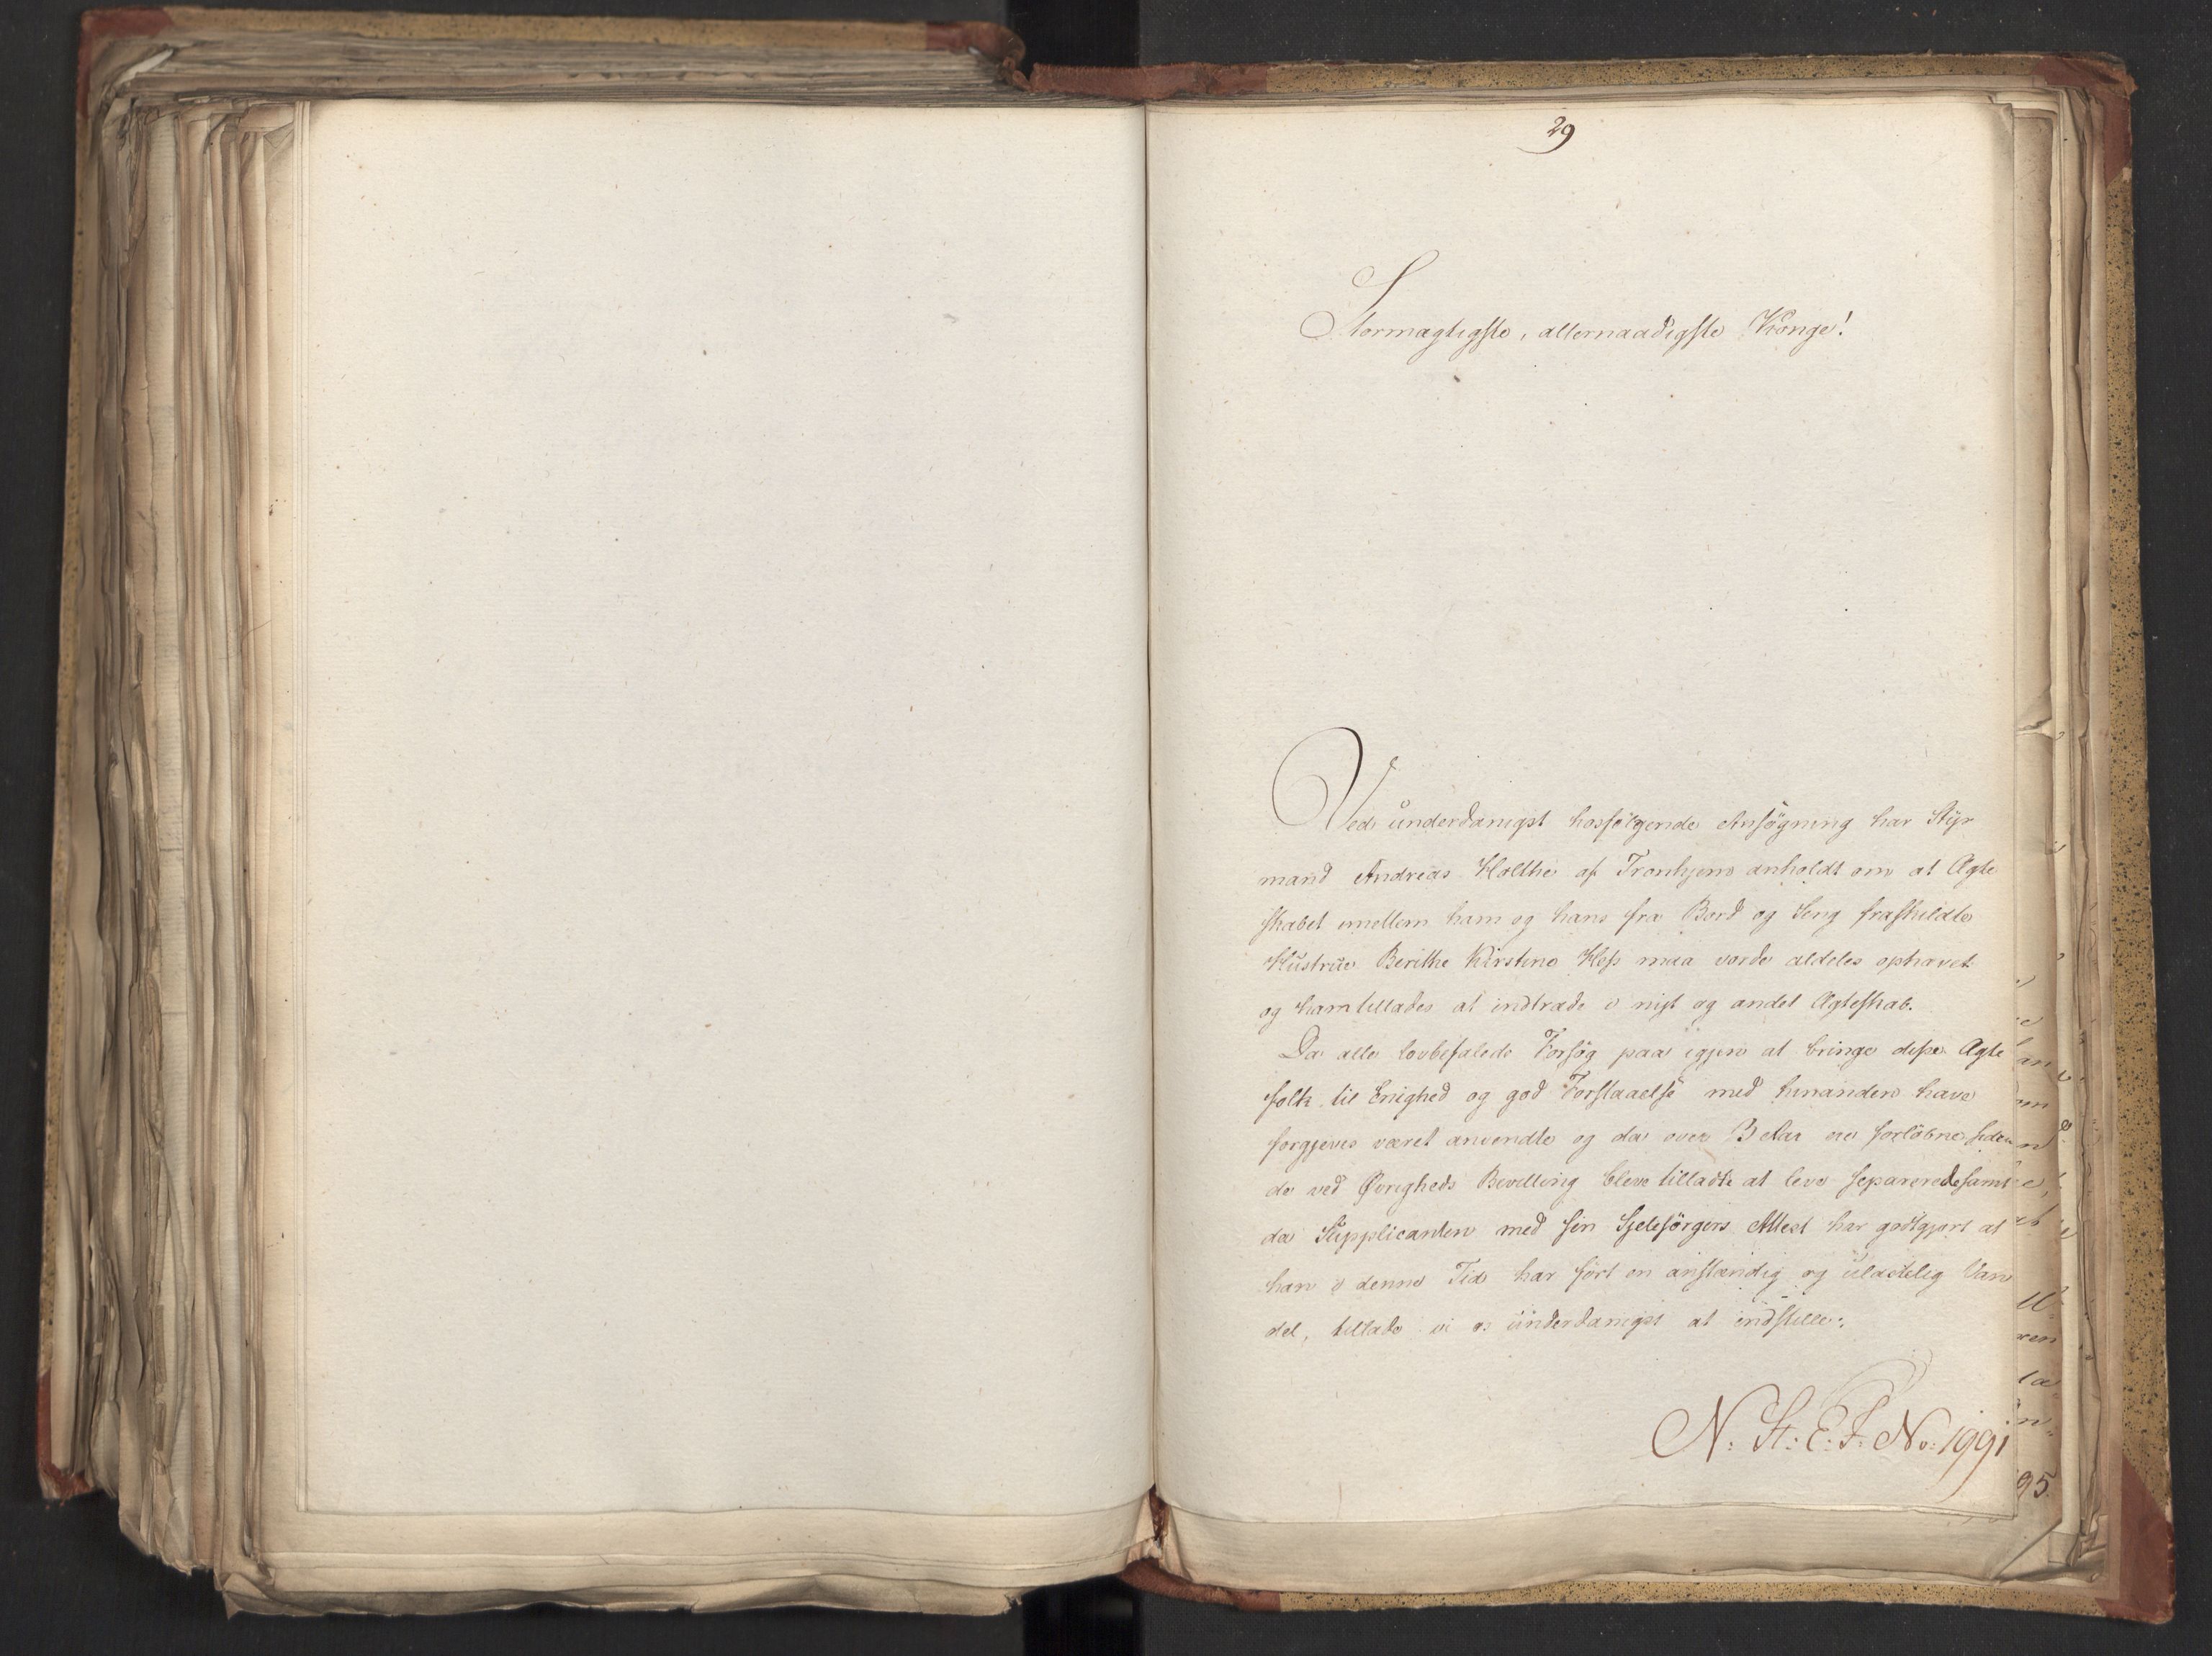 29
Stormægtigste, allernaadigste Konge!
Ved underdanigst hosfølgende Ansøgning har Styr
mand Andreas Holthe af Tronhjem anholdt om at Ægte
skabet imellem ham og hans fra Bord og Seng fraskildte
Hustrue Berithe Kirstine Hess maa vorde aldeles ophævet
og ham tillades at indtræde i nyt og andet Ægteskab.
Da alle lovbefalede Forsøg paa igjen at bringe disse Ægte
folk til Enighed og god Forstaaelse med hinanden have
forgjeves været anvendte og da over 3 Aar ere forløbne siden
de ved Øvrigheds Bevilling bleve tilladte at leve separerede samt
da Supplicanten med sin Sjelesørgers Attest har godtgjort at
han i denne Tid har ført en anstændig og ulastelig Van
del, tillade vi os underdanigst at indstille:
N. St: E: F. No: 1991
95